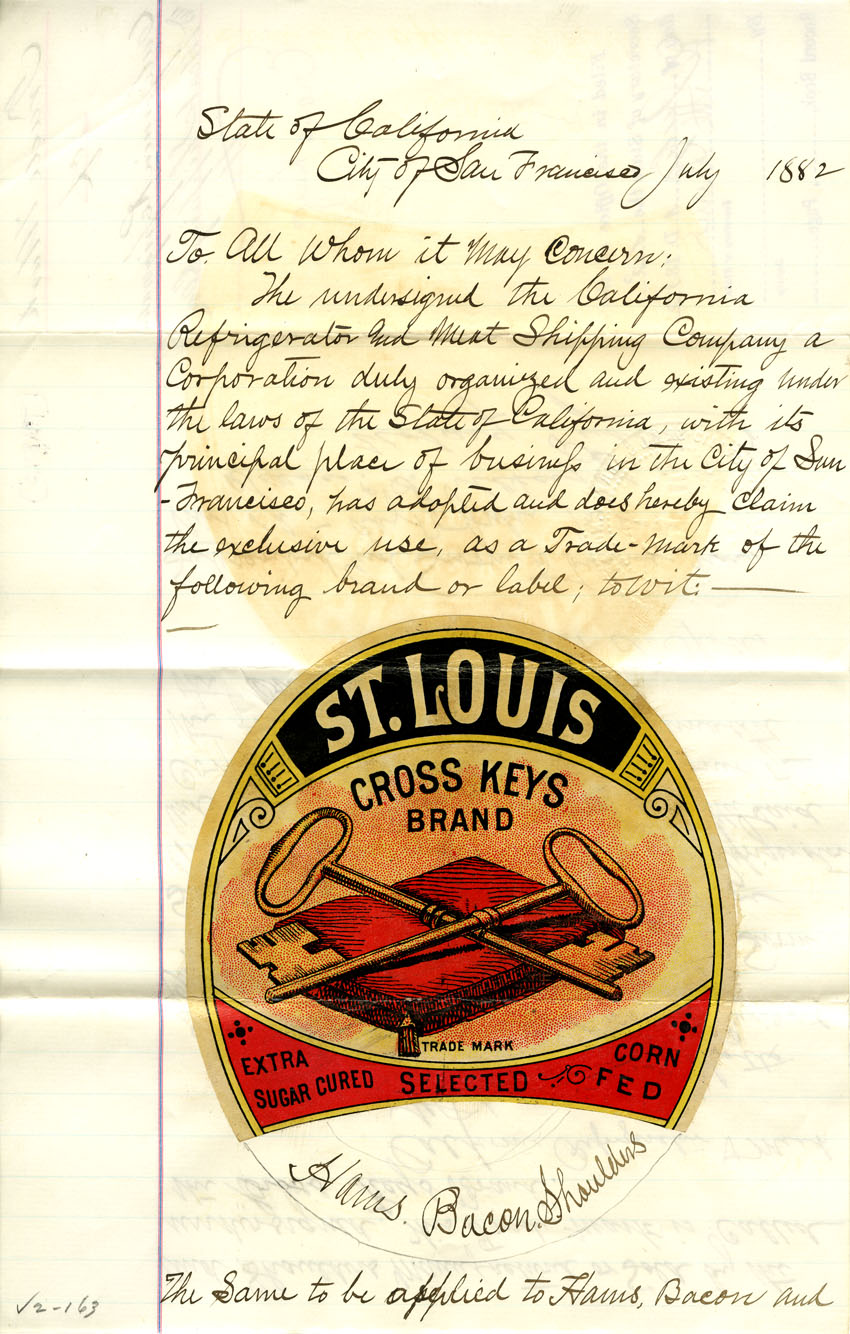 State of California
City of San Francisco July 1882
To All Whom it May Concern:
The undersigned the California
Refrigerator and Meat Shipping Company a
Corporation duly organized and existing under
the laws of the State of California, with its
principal place of business in the City of San
-Francisco, has adopted and does hereby claim
the exclusive use, as a Trade-Mark of the
following brand or label; towit:
ST. LOUIS
CROSS KEYS
BRAND
TRADE MARK
EXTRA
SUGAR CURED
SELECTED
CORN
FED
Hams. Bacon. Shoulders
The Same to be applied to Hams, Bacon and
√2-163